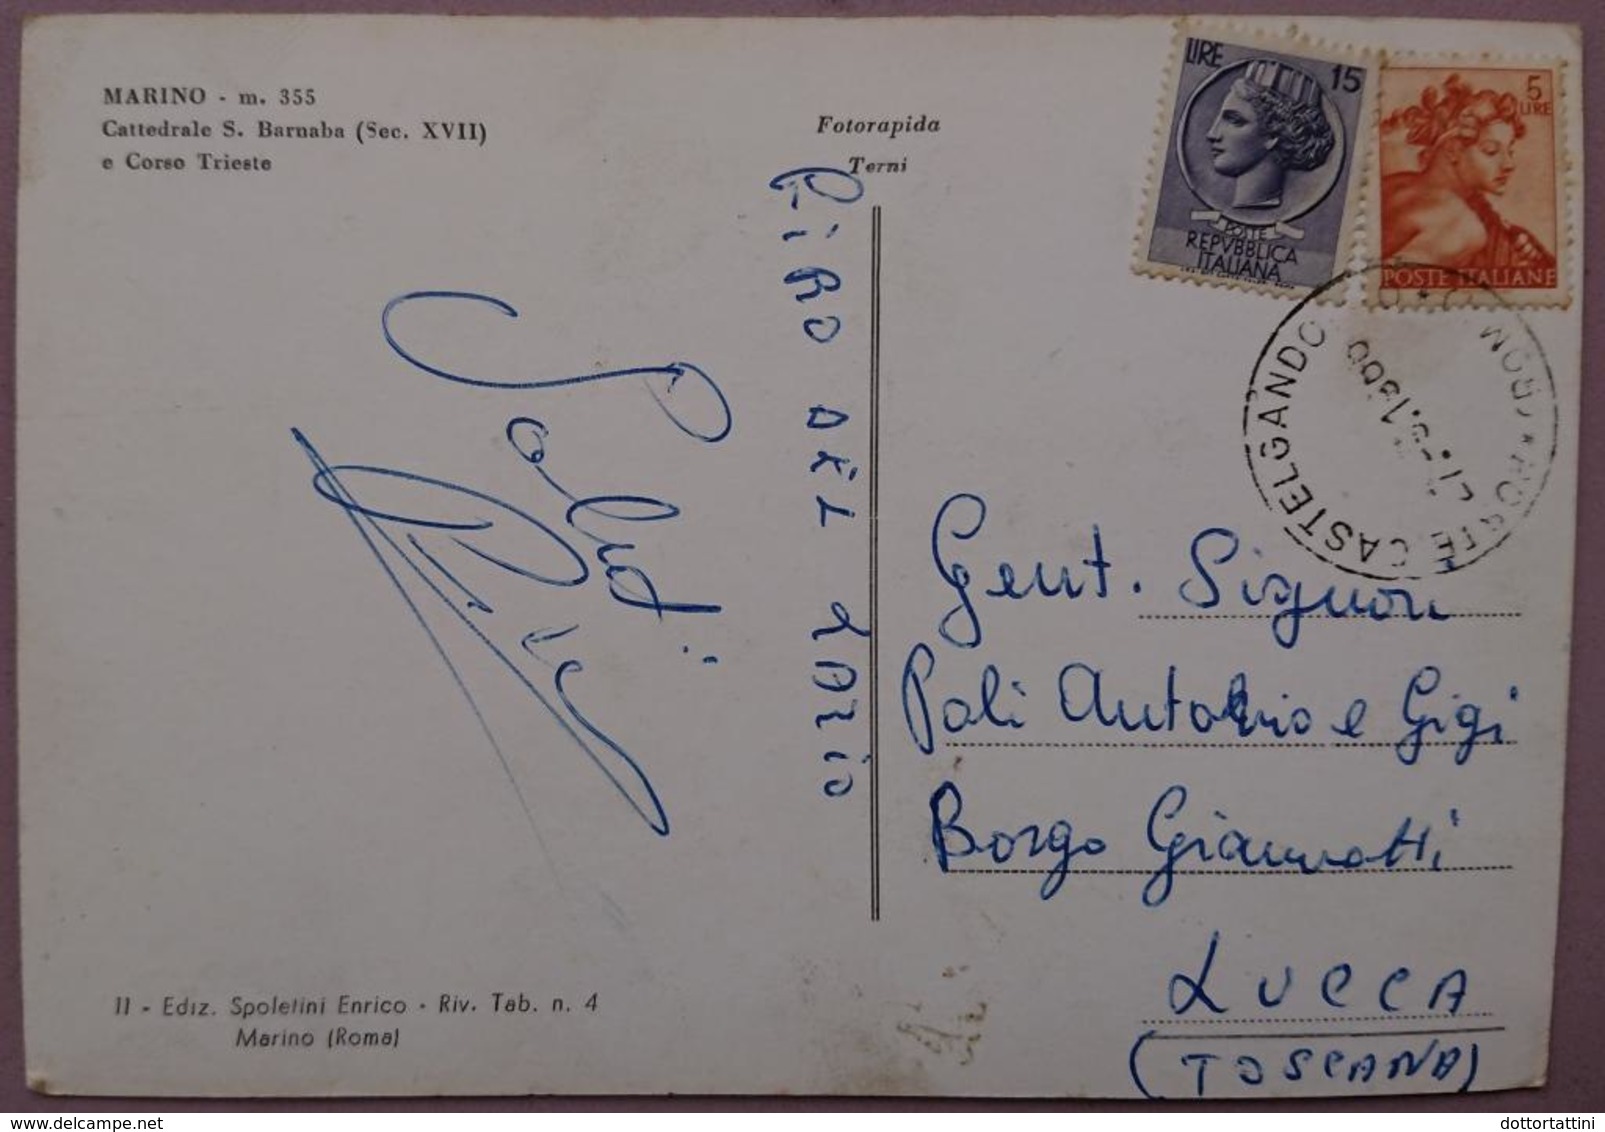 MARINO - m. 355
Cattedrale S. Barnaba (Sec. XVII)
e Corso Trieste
Fotorapida
Terni
LIRE 15
POSTE
REPVBBLICA
ITALIANA
5
LIRE
POSTE ITALIANE
CASTELGANDOLFO
GIRO DEL LAZIO
Saluti
Gent. Signori
Poli Antonio e Gigi
Borgo Giannotti
LUCCA
(TOSCANA)
II - Ediz. Spoletini Enrico - Riv. Tab. n. 4
Marino (Roma)
dottortattini